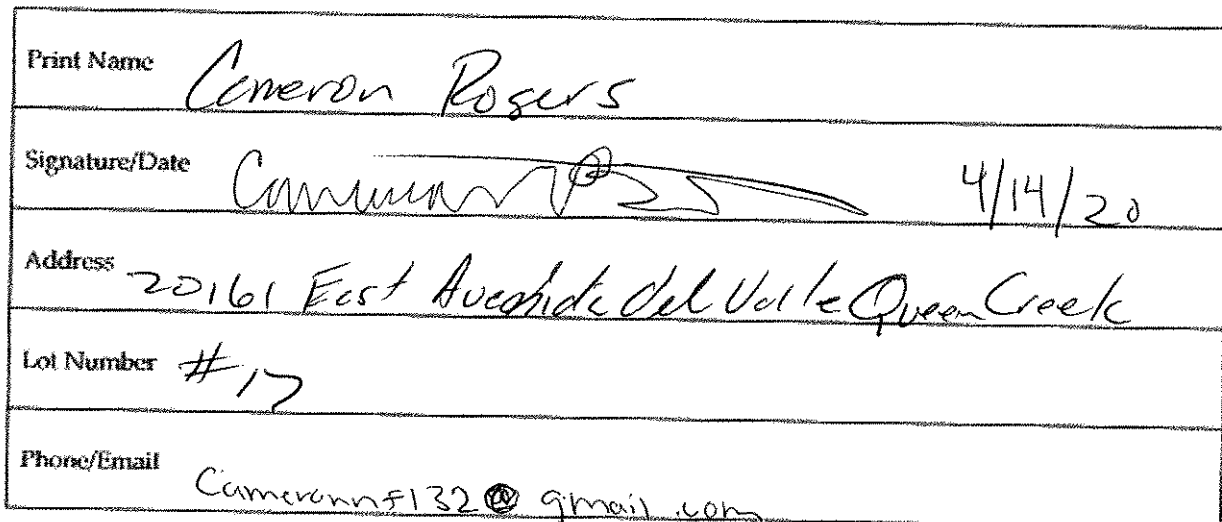 Print Name Cameron Rogers
Signature/Date 4/14/20
Address 20161 East Avenida del Valle Queen Creek
Lot Number #17
Phone/Email @gmail.com